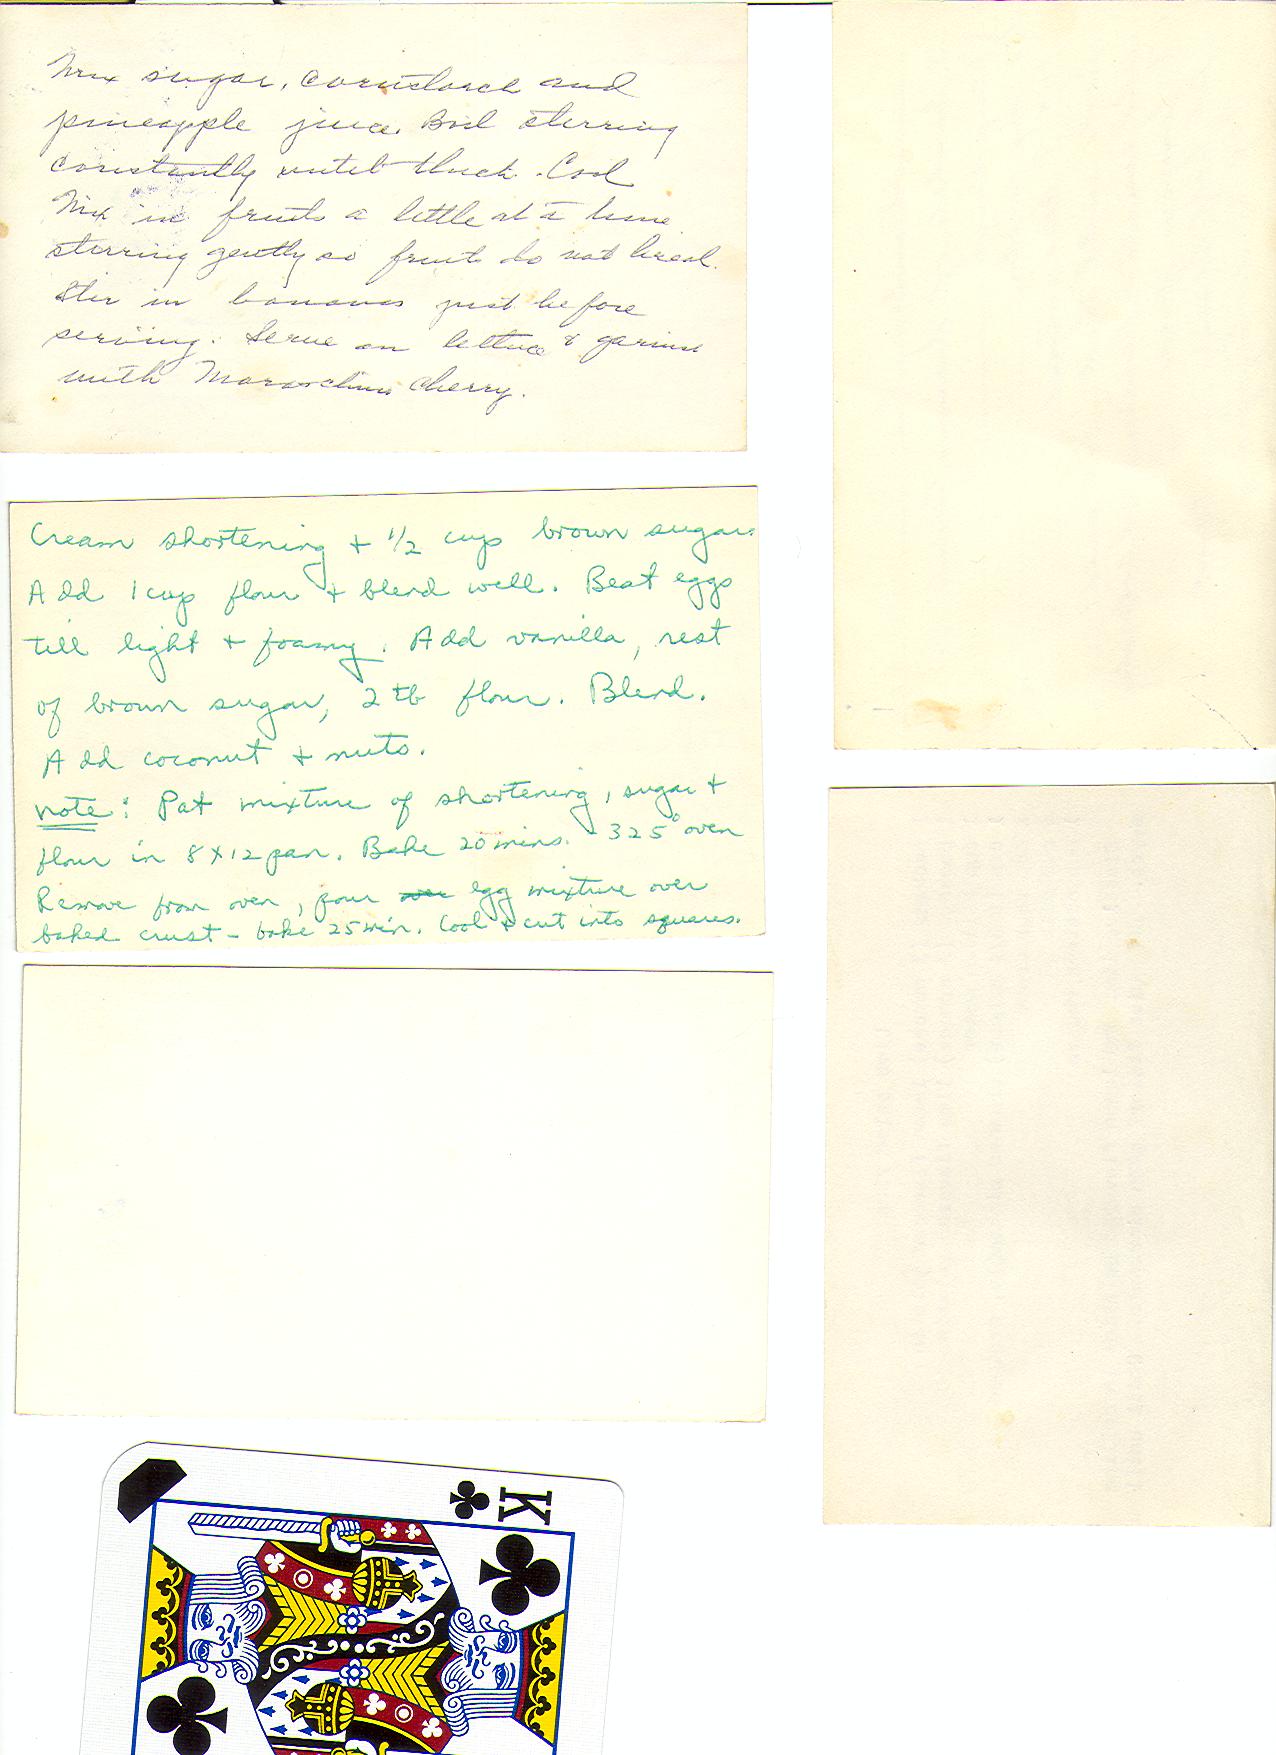 Mix sugar, cornstarch and
pineapple juice. Boil stirring
constantly until thick. Cool
Mix in fruits a little at a time
stirring gently so fruits do not break.
Stir in bananas just before
serving. Serve on lettuce & garnish
with Maraschino cherry.
Cream shortening + 1/2 cup brown sugar.
Add 1 cup flour + blend well. Beat eggs
till light + foamy. Add vanilla, rest
of brown sugar, 2 tb flour. Blend.
Add coconut + nuts.
note: Pat mixture of shortening, sugar +
flour in 8 x 12 pan. Bake 20 mins. 325° oven
Remove from oven, pour egg mixture over
baked crust - bake 25 min. Cool + cut into squares.
K